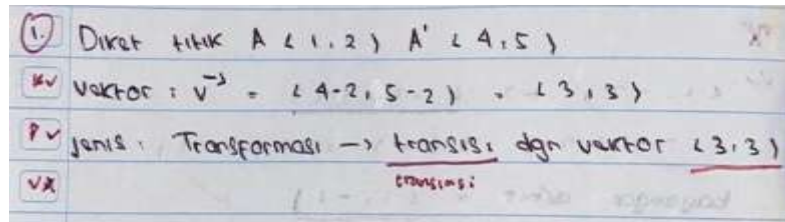 1. Diket titik A (1,2) A' (4,5)
Vektor : v→ = (4-2, 5-2) = (3,3)
jenis : Transformasi -> transisi dgn vektor (3,3)
translasi